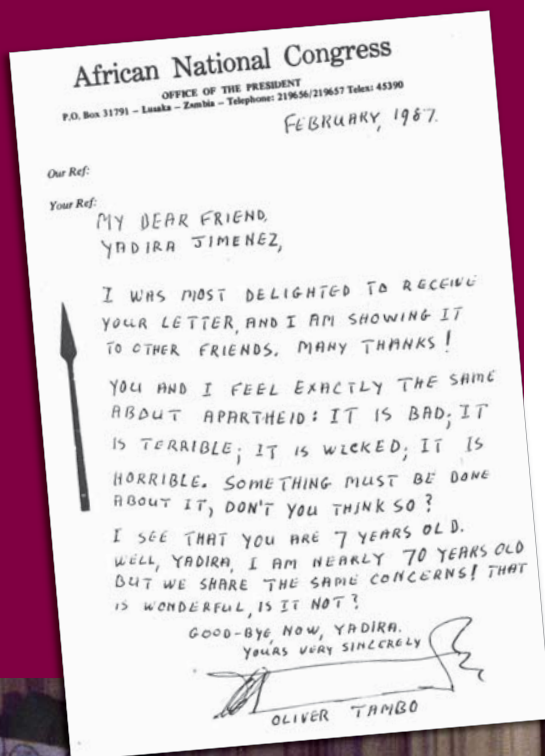 African National Congress
OFFICE OF THE PRESIDENT
P.O. Box 31791 – Lusaka – Zambia – Telephone: 219656/219657 Telex: 45390
FEBRUARY, 1987.
Our Ref:
Your Ref:
MY DEAR FRIEND,
YADIRA JIMENEZ,
I WAS MOST DELIGHTED TO RECEIVE
YOUR LETTER, AND I AM SHOWING IT
TO OTHER FRIENDS. MANY THANKS!
YOU AND I FEEL EXACTLY THE SAME
ABOUT APARTHEID: IT IS BAD; IT
IS TERRIBLE; IT IS WICKED; IT IS
HORRIBLE. SOMETHING MUST BE DONE
ABOUT IT, DON'T YOU THINK SO?
I SEE THAT YOU ARE 7 YEARS OLD.
WELL, YADIRA, I AM NEARLY 70 YEARS OLD
BUT WE SHARE THE SAME CONCERNS! THAT
IS WONDERFUL, IS IT NOT?
GOOD-BYE, NOW, YADIRA.
YOURS VERY SINCERELY
OLIVER TAMBO